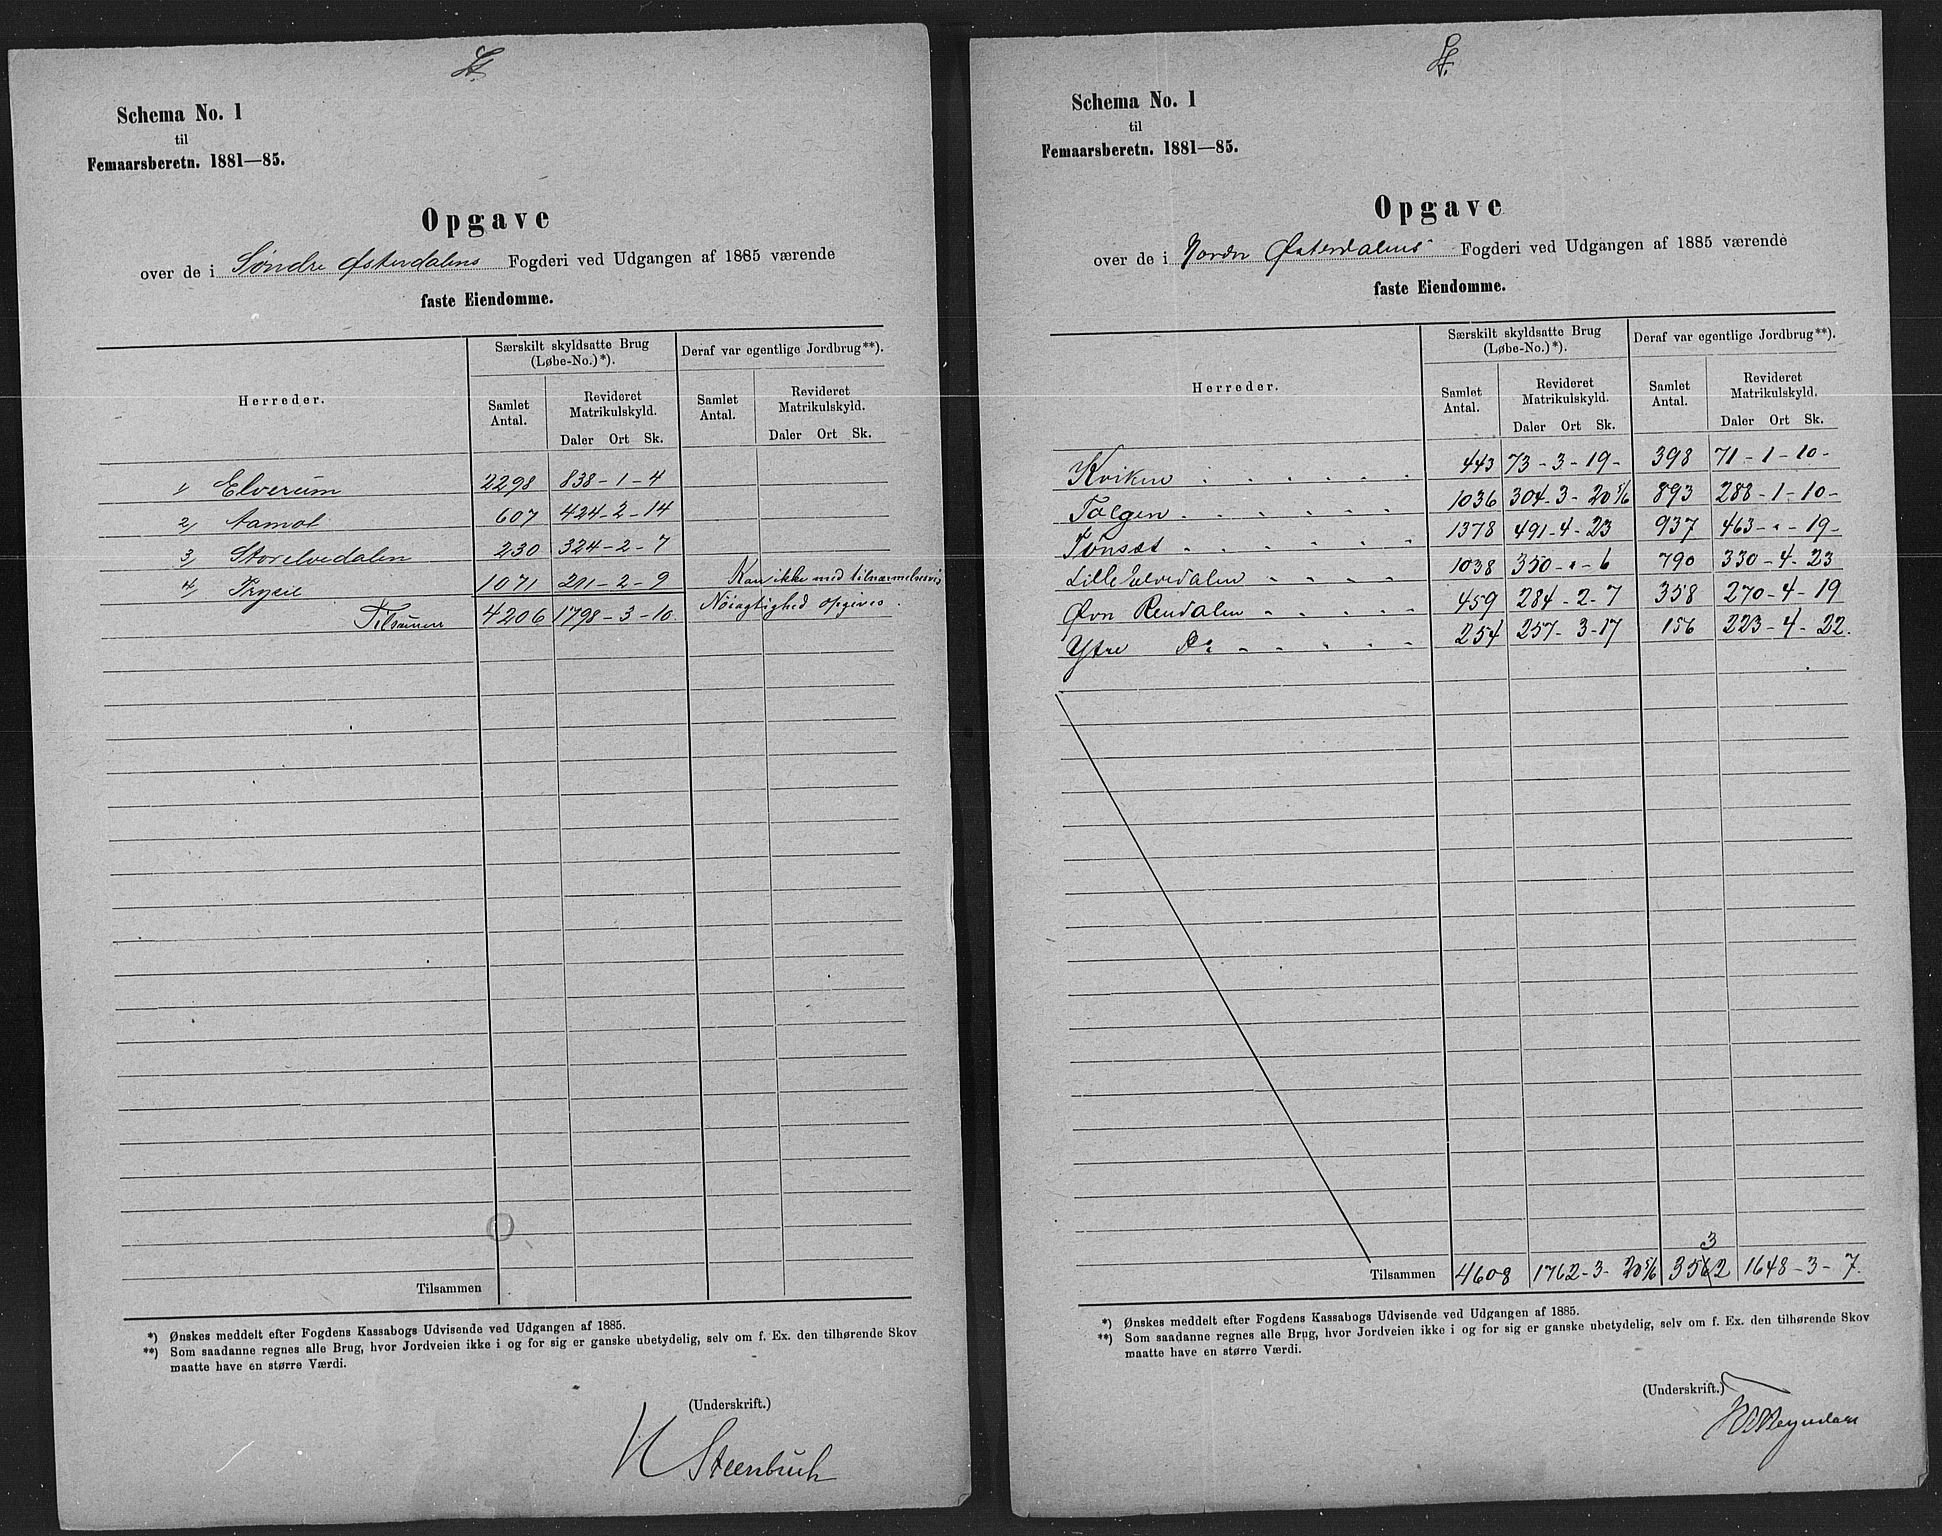 Schema No. 1
til
Femaarsberetn. 1881—85.
Opgave
over de i Søndre Østerdalens Fogderi ved Udgangen af 1885 værende
faste Eiendomme.
Herreder.
Særskilt skyldsatte Brug
(Løbe-No.)*).
Deraf var egentlige Jordbrug**).
Samlet
Antal.
Revideret
Matrikulskyld.
Daler Ort Sk.
Samlet
Antal.
Revideret
Matrikulskyld.
Daler Ort Sk.
1) Elverum 2298 838-1-4
2) Aamot 607 424-2-14
3) Storelvedalen 230 324-2-7
4) Trysil 1071 211-2-9 Kan ikke med tilnærmelsesvis
Tilsammen 4206 1798-3-10. Nøiagtighed opgives.
Tilsammen
*) Ønskes meddelt efter Fogdens Kassabogs Udvisende ved Udgangen af 1885.
**) Som saadanne regnes alle Brug, hvor Jordveien ikke i og for sig er ganske ubetydelig, selv om f. Ex. den tilhørende Skov
maatte have en større Værdi.
(Underskrift.)
H Steenbuch
Schema No. 1
til
Femaarsberetn. 1881—85.
Opgave
over de i Nordre Østerdalens Fogderi ved Udgangen af 1885 værende
faste Eiendomme.
Herreder.
Særskilt skyldsatte Brug
(Løbe-No.)*).
Deraf var egentlige Jordbrug**).
Samlet
Antal.
Revideret
Matrikulskyld.
Daler Ort Sk.
Samlet
Antal.
Revideret
Matrikulskyld.
Daler Ort Sk.
Kvikne 443 73-3-19- 398 71-1-10-
Tolgen 1036 304-3-20 5/6 893 288-1-10-
Tønset 1378 491-4-23 937 463-"-19-
Lille Elvedalen 1038 350-"-6 790 330-4-23
Øvre Rendalen 459 284-2-7 358 270-4-19
Ytre Do 254 257-3-17 156 223-4-22.
3
Tilsammen 4608 1762-3-20 5/6 3562 1648-3-7.
*) Ønskes meddelt efter Fogdens Kassabogs Udvisende ved Udgangen af 1885.
**) Som saadanne regnes alle Brug, hvor Jordveien ikke i og for sig er ganske ubetydelig, selv om f. Ex. den tilhørende Skov
maatte have en større Værdi.
(Underskrift.)